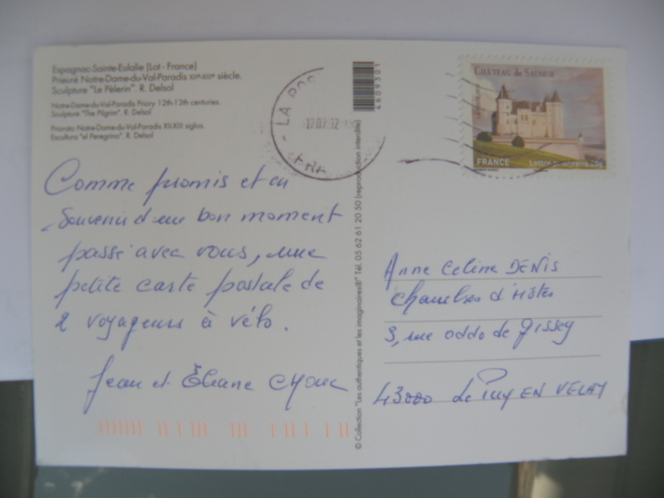 Espagnac-Sainte-Eulalie (Lot - France)
Prieuré Notre-Dame-du-Val-Paradis XIIᵉ-XIIIᵉ siècle.
Sculpture "Le Pèlerin". R. Delsol
Notre-Dame-du-Val-Paradis Priory 12th-13th centuries.
Sculpture "The Pilgrim". R. Delsol
Priorato Notre-Dame-du-Val-Paradis XII-XIII siglos.
Escultura "el Peregrino". R. Delsol
Comme promis et en
souvenir d'un bon moment
passé avec vous, une
petite carte postale de
2 voyageurs à vélo.
Jean et Eliane
© Collection "Les authentiques et les imaginaires®" Tél. 05 62 61 20 50 (reproduction interdite)
LA
CHÂTEAU de SAUMUR
FRANCE
Anne Celine DENIS
chambres d'Hôtes
3, rue oddo de Gissey
43000 Le Puy EN VELAY